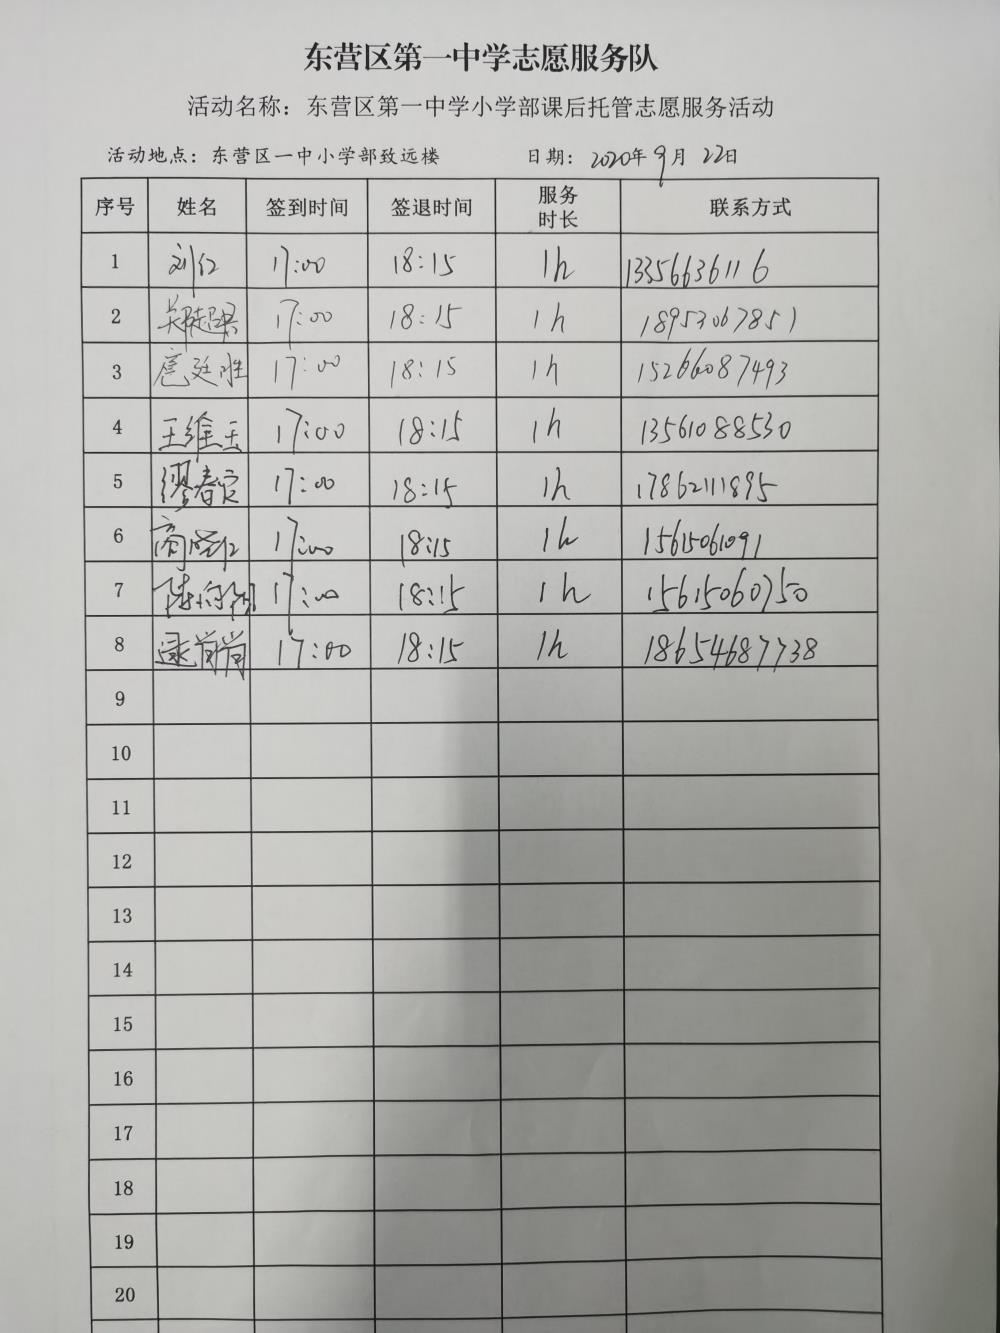 东营区第一中学志愿服务队
活动名称：东营区第一中学小学部课后托管志愿服务活动
活动地点：东营区一中小学部致远楼 日期：2020年9月22日
序号 姓名 签到时间 签退时间 服务时长 联系方式
1 刘仁 17:00 18:15 1h 13356636116
2 17:00 18:15 1h 18953067851
3 扈廷胜 17:00 18:15 1h 15266087493
4 王维玉 17:00 18:15 1h 13561088530
5 缪春 17:00 18:15 1h 17862111895
6 商 17:00 18:15 1h 15615061091
7 陈 17:00 18:15 1h 15615060750
8 逯肖肖 17:00 18:15 1h 18654687738
9
10
11
12
13
14
15
16
17
18
19
20